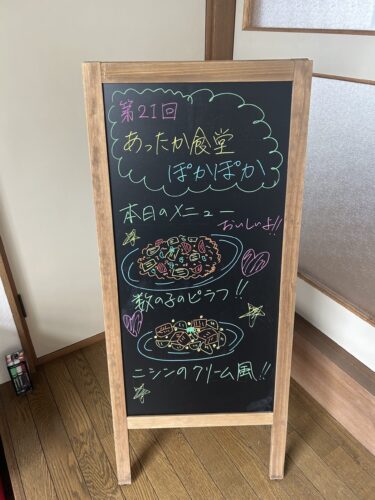 第21回
あったか食堂
ぽかぽか
本日のメニュー
おいしいよ!!
数の子のピラフ!!
ニシンのクリーム風!!